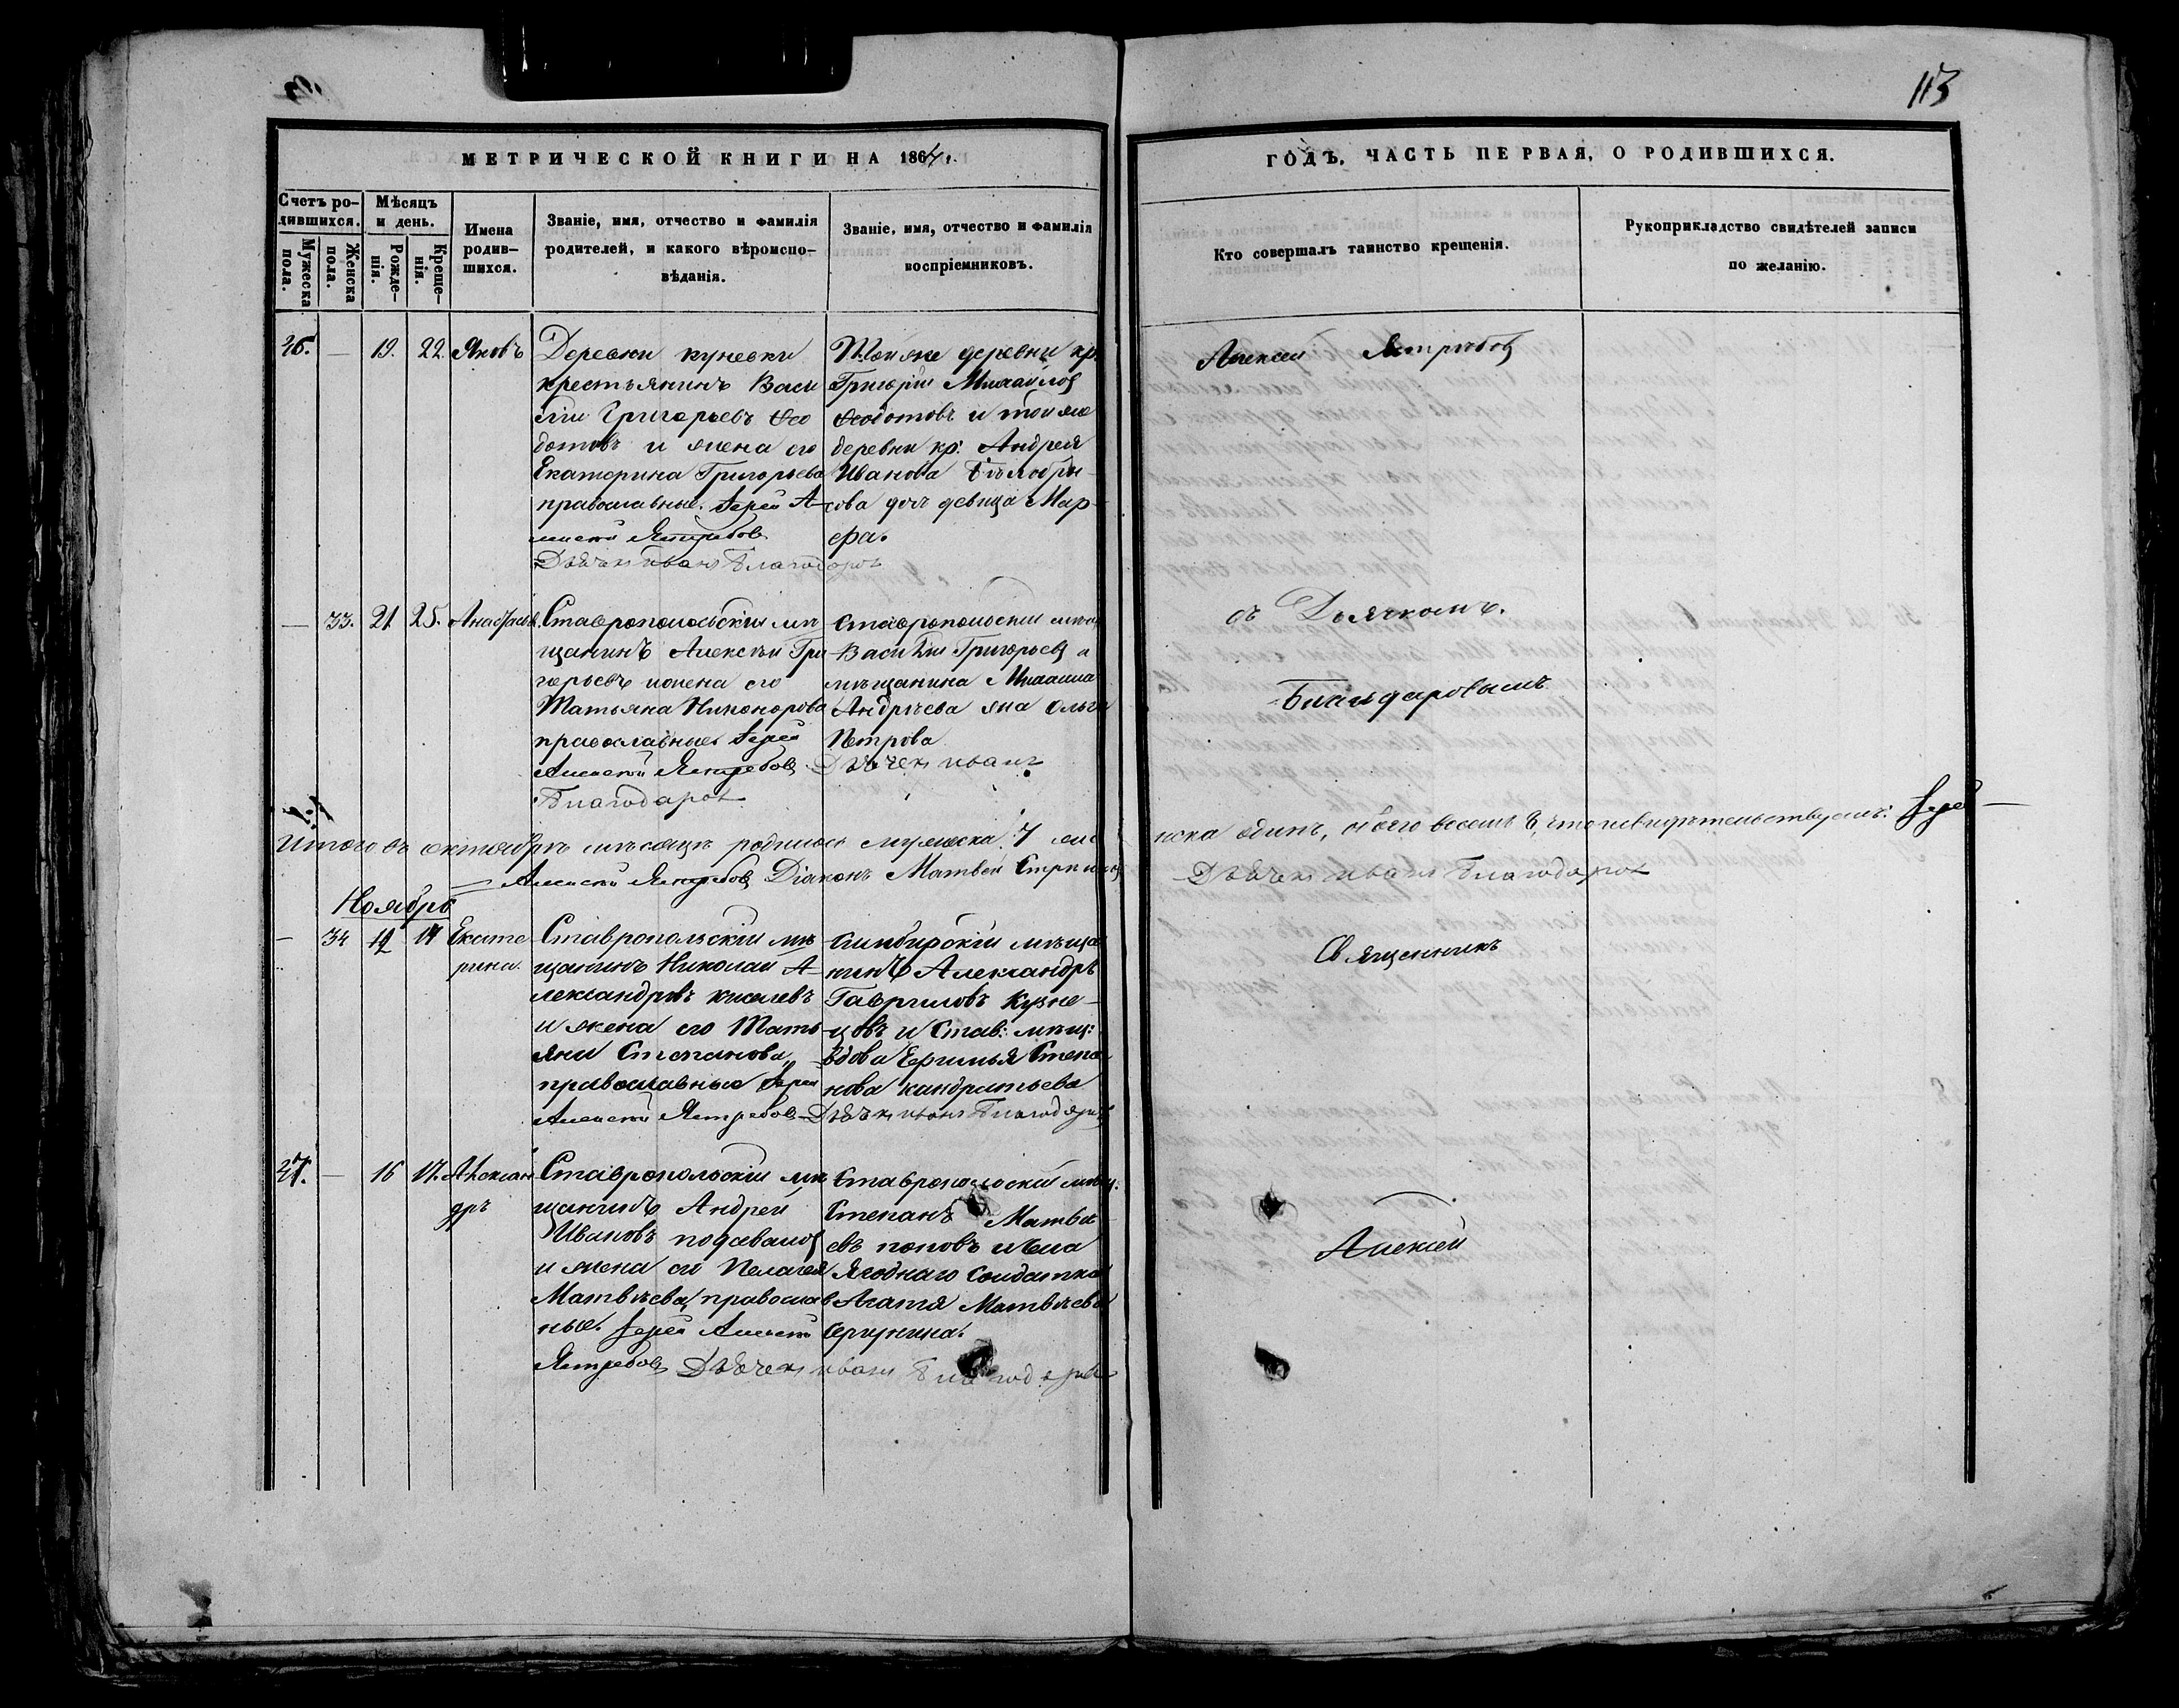 113
МЕТРИЧЕСКОЙ КНИГИ НА 1864.
ГОДЪ, ЧАСТЬ ПЕРВАЯ, О РОДИВШИХСЯ.
Счетъ ро-
дившихся.
Мужеска
пола.
Женска
пола.
Мѣсяцъ
и день.
Рожде-
нія.
Креще-
нія.
Имена
родив-
шихся.
Званіе, имя, отчество и фамилія
родителей, и какого вѣроиспо-
вѣданія.
Званіе, имя, отчество и фамилія
воспріемниковъ.
Кто совершалъ таинство крещенія.
Рукоприкладство свидѣтелей записи
по желанію.
26. — 19. 22. Яковъ
Деревни кунеевки
крестьянинъ Васи
лій Григорьевъ Ѳео
дотовъ и жена его
Екатерина Григорьева
православные. Іерей А-
лексей Ястребовъ
Дьячек иванъ Благодаров
Той же деревни кр.
Григорій Михайловъ
Ѳеодотовъ и той же
деревни кр: Андрея
Иванова Бѣлобры-
сова дочь девица Мар-
фа.
Алексей Ястребовъ
— 33. 21. 25. Анастасія.
Ставропольскій мѣ
щанинъ Алексѣй Гри
горьевъ и жена его
Татьяна Никонорова
православные Іерей
Алексей Ястребовъ
Дьячек иванъ
Благодаров
Ставропольскій мѣщ
Василій Григорьевъ и
мѣщанина Михаила
Андрѣева жна Ольга
Петрова
съ Дьячкомъ.
Благодаровымъ
Итого въ октябрѣ мѣсяцѣ родилось мужеска 7 жен
ска одинъ, обоего восемь 8, что и свидѣтельствуемъ: Іерей
Алексей Ястребовъ Діаконъ Матвей
Дьячек иванъ Благодаров
Ноябрь
— 34 12 14 Екате
рина.
Ставропольскій мѣ
щанинъ Николай А-
лександровъ киселевъ
и жена его Тать-
яна Степанова,
православные Іерей
Алексей Ястребовъ
Дьячек иванъ Благодаров
Симбирскій мѣща
нинъ Александръ
Гавриловъ Кузне-
цовъ и Став: мѣщ:
вдова Ефимья Степа
нова кандратьева
Священникъ
27. — 16 17. Алексан
дръ
Ставропольскій мѣ
щанинъ Андрей
Ивановъ подеваловъ
и жена его Пелагея
Матвѣева, православ
ные. Іерей Алексей
Ястребовъ Дьячек иванъ Благодаров
Ставропольскій мѣщ:
Степанъ Матвѣ
евъ поповъ и села
Ягоднаго Солдатка
Агатя Матвѣева
Сергунина.
Алексей